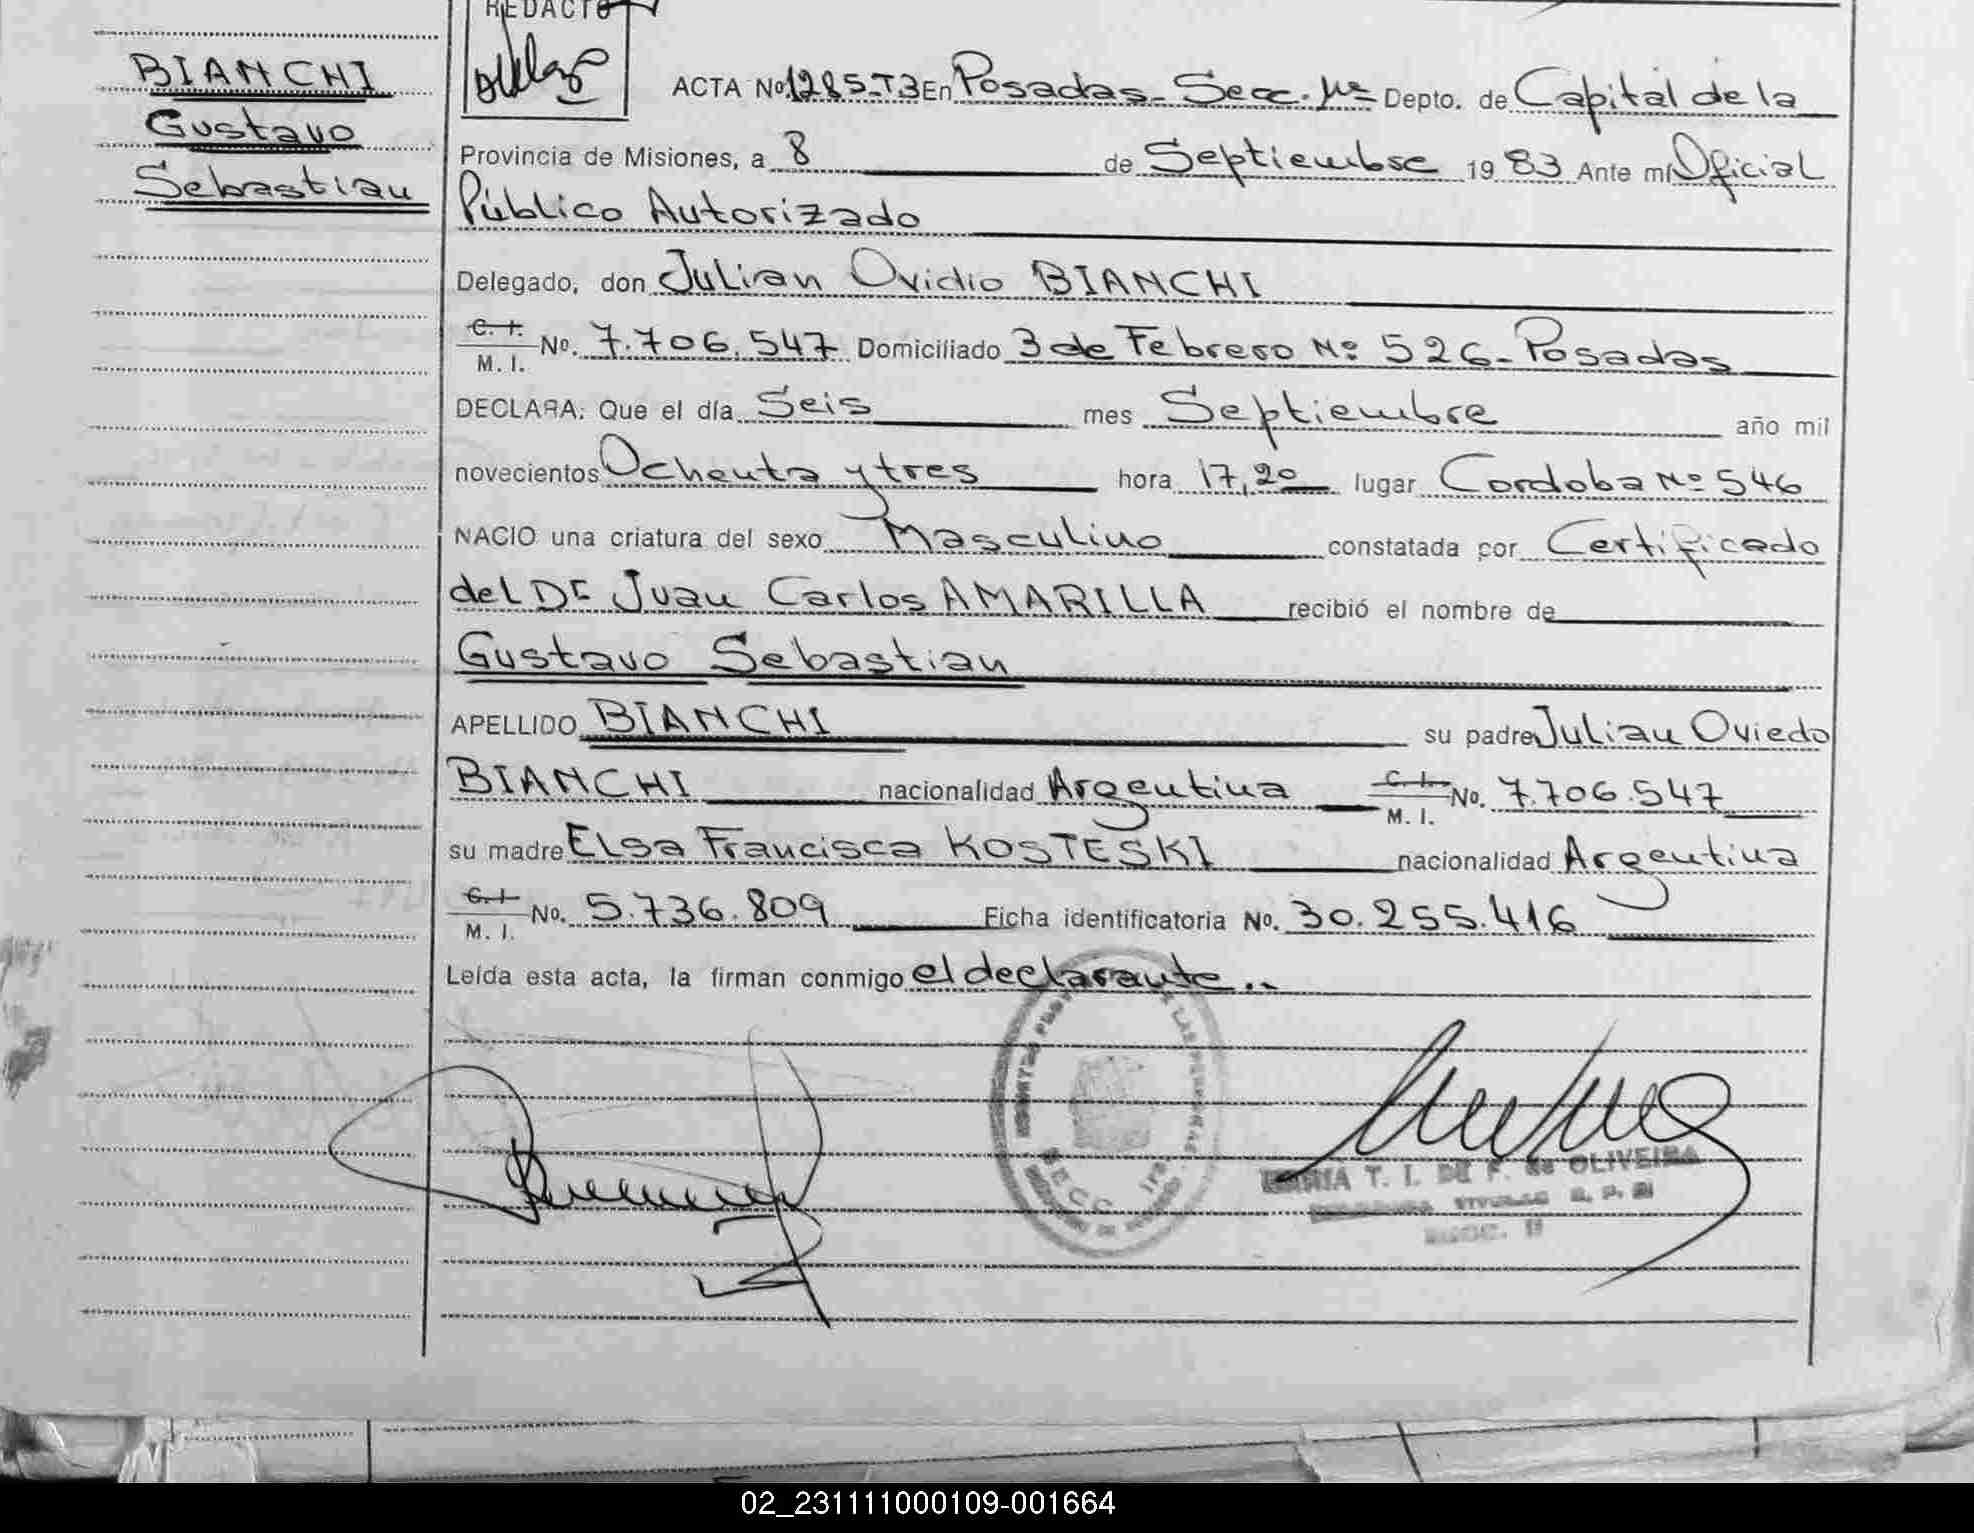 REDACTO
BIANCHI
Gustavo
Sebastian
ACTA No. 1285-T3 En Posadas - Secc. 1ra Depto. de Capital de la
Provincia de Misiones, a 8 de Septiembre 1983 Ante mí Oficial
Público Autorizado
Delegado, don Julian Ovidio BIANCHI
C. I.
M. I. No. 7.706.547 Domiciliado 3 de Febrero Nº 526 - Posadas
DECLARA: Que el día Seis mes Septiembre año mil
novecientos Ochenta y tres hora 17,20 lugar Cordoba Nº 546
NACIO una criatura del sexo Masculino constatada por Certificado
del Dr Juan Carlos AMARILLA recibió el nombre de
Gustavo Sebastian
APELLIDO BIANCHI su padre Julian Oviedo
BIANCHI nacionalidad Argentina C. I. M. I. No. 7.706.547
su madre Elsa Francisca KOSTESKI nacionalidad Argentina
C. I. M. I. No. 5.736.809 Ficha identificatoria No. 30.255.416
Leída esta acta, la firman conmigo el declarante..
SECC. 1ra
T. I. DE F. de OLIVEIRA
02_231111000109-001664